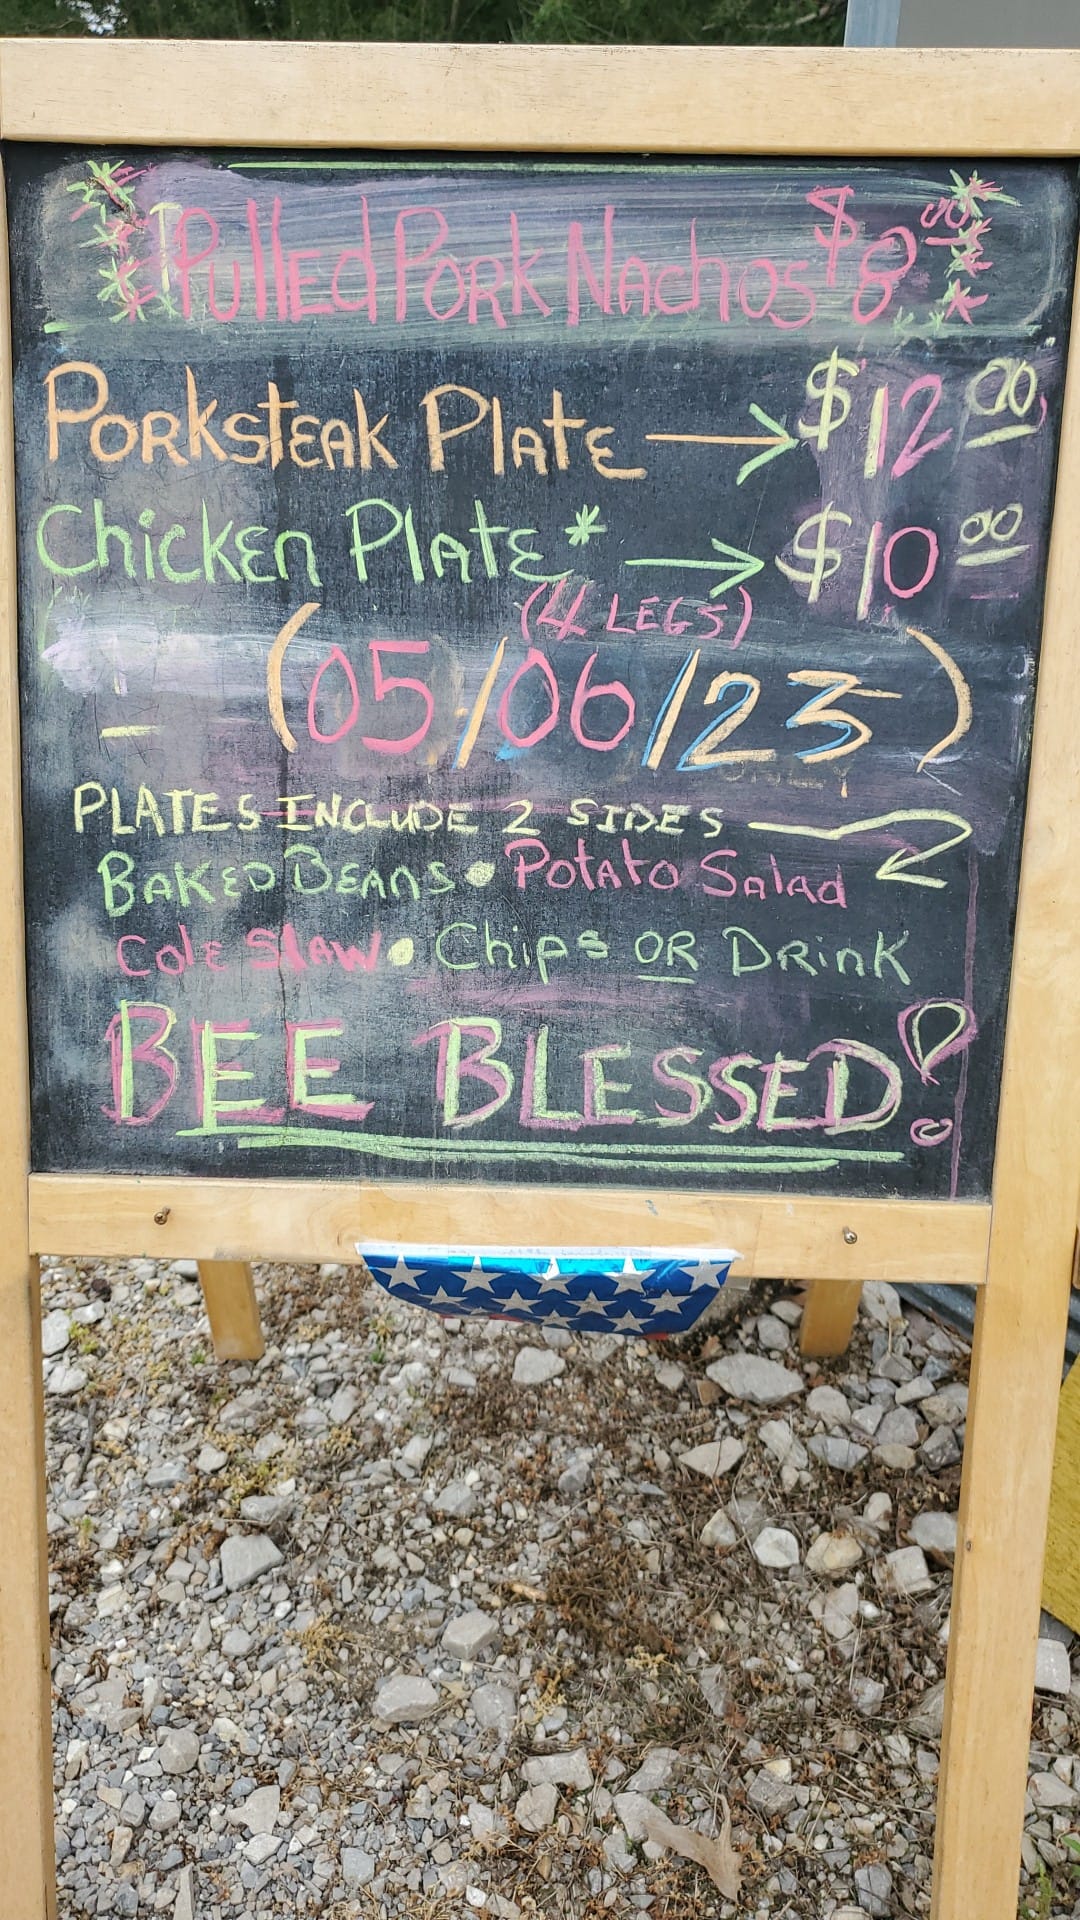 Pulled Pork Nachos $8.00
Porksteak Plate → $12.00
Chicken Plate* → $10.00
(4 LEGS)
(05/06/23)
ONLY
PLATES INCLUDE 2 SIDES
BAKED BEANS • Potato Salad
Cole Slaw • Chips OR Drink
BEE BLESSED!